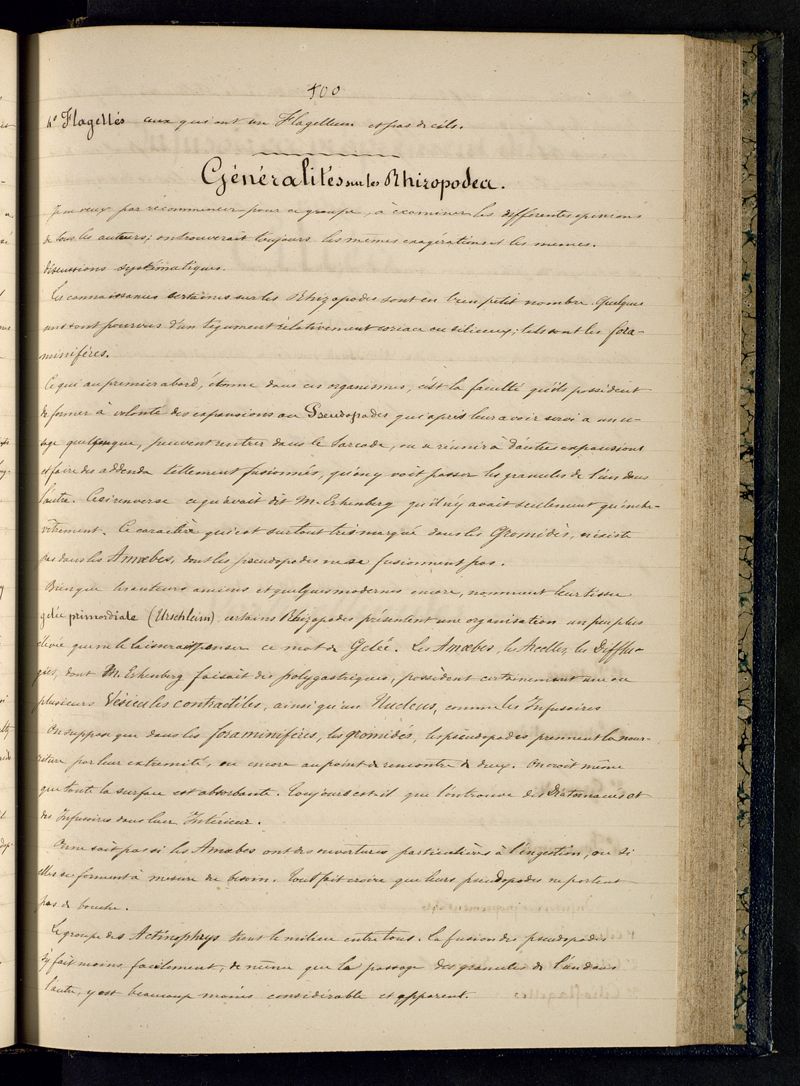 400
4° Flagellés ceux qui ont un Flagellum et pas de cils.
Généralités sur les Rhizopodea.
Je ne veux pas recommencer pour ce groupe, à examiner les différentes opinions
de tous les auteurs; on trouverait toujours les mêmes exagérations et les memes.
discussions systématiques.
Les connaissances certaines sur les Rhizopodes sont en bien petit nombre. Quelques
uns sont pourvus d'un tégument relativement coriace ou siliceux; tels sont les fora-
minifères.
Ce qui au premier abord, étonne dans ces organismes, c'est la faculté qu'ils possèdent
de former à volonté des expansions ou Pseudopodes qui après leur avoir servi a un u-
sage quelconque, peuvent rentrer dans le Sarcode, ou se réunir à d'autres expansions
et faire des addenda tellement fusionnés, qu'on y voit passer les granules de l'un dans
l'autre. Ceci renverse ce qu'avait dit M. Erhenberg qu'il n'y avait seulement qu'enche-
vêtrement. Ce caractère qui est surtout très marqué dans les Gromidés, n'existe
pas dans les Amœbes, dont les pseudopodes ne se fusionnent pas.
Bien que les auteurs anciens et quelques modernes encore, nomment leur tissu
gelée primordiale (Urschleim), certains Rhizopodes présentent une organisation un peu plus
élevée que ne le laisserait penser ce mot de Gelée. Les Amœbes, les Arcelles, les Difflu-
gies, dont M. Erhenberg faisait des polygastriques, possèdent certainement une ou
plusieurs Vésicules contractiles, ainsi qu'un Nucleus, comme les Infusoires
On suppose que dans les foraminifères, les gromidés, les pseudopodes prennent la nour-
riture par leur extremité, ou encore au point de rencontre de deux. On croit même
que toute la surface est absorbante. Toujours est-il que l'on trouve des Diatomacées et
des Infusoires dans leur Intérieur.
On ne sait pas si les Amœbes ont des ouvertures particulières à l'ingestion, ou si
elles se forment à mesure de besoin. Tout fait croire que leurs pseudopodes ne portent
pas de bouche.
Le groupe des Actinophrys tient le milieu entre tous. La fusion des pseudopodes
s'y fait moins facilement, de même que le passage des granules de l'un dans
l'autre, y est beaucoup moins considérable et apparent.